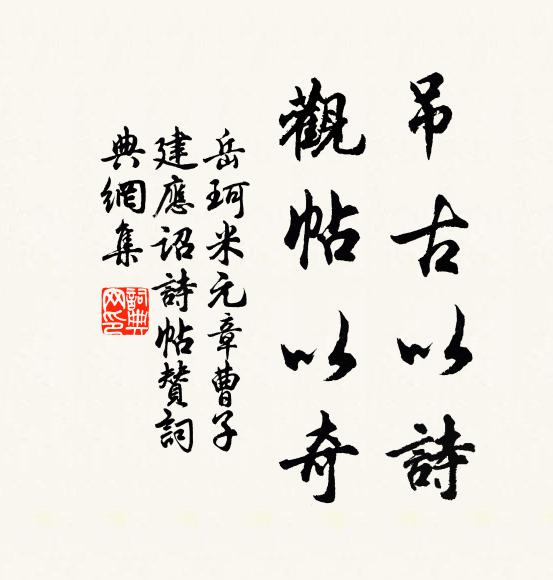 吊古以詩
觀帖以奇
岳珂米元章曹子
建應詔詩帖贊詞
典網集
詞典
网印